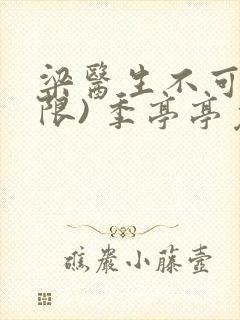 梁醫生不可
限）季亭亭
礁巖小藤壺